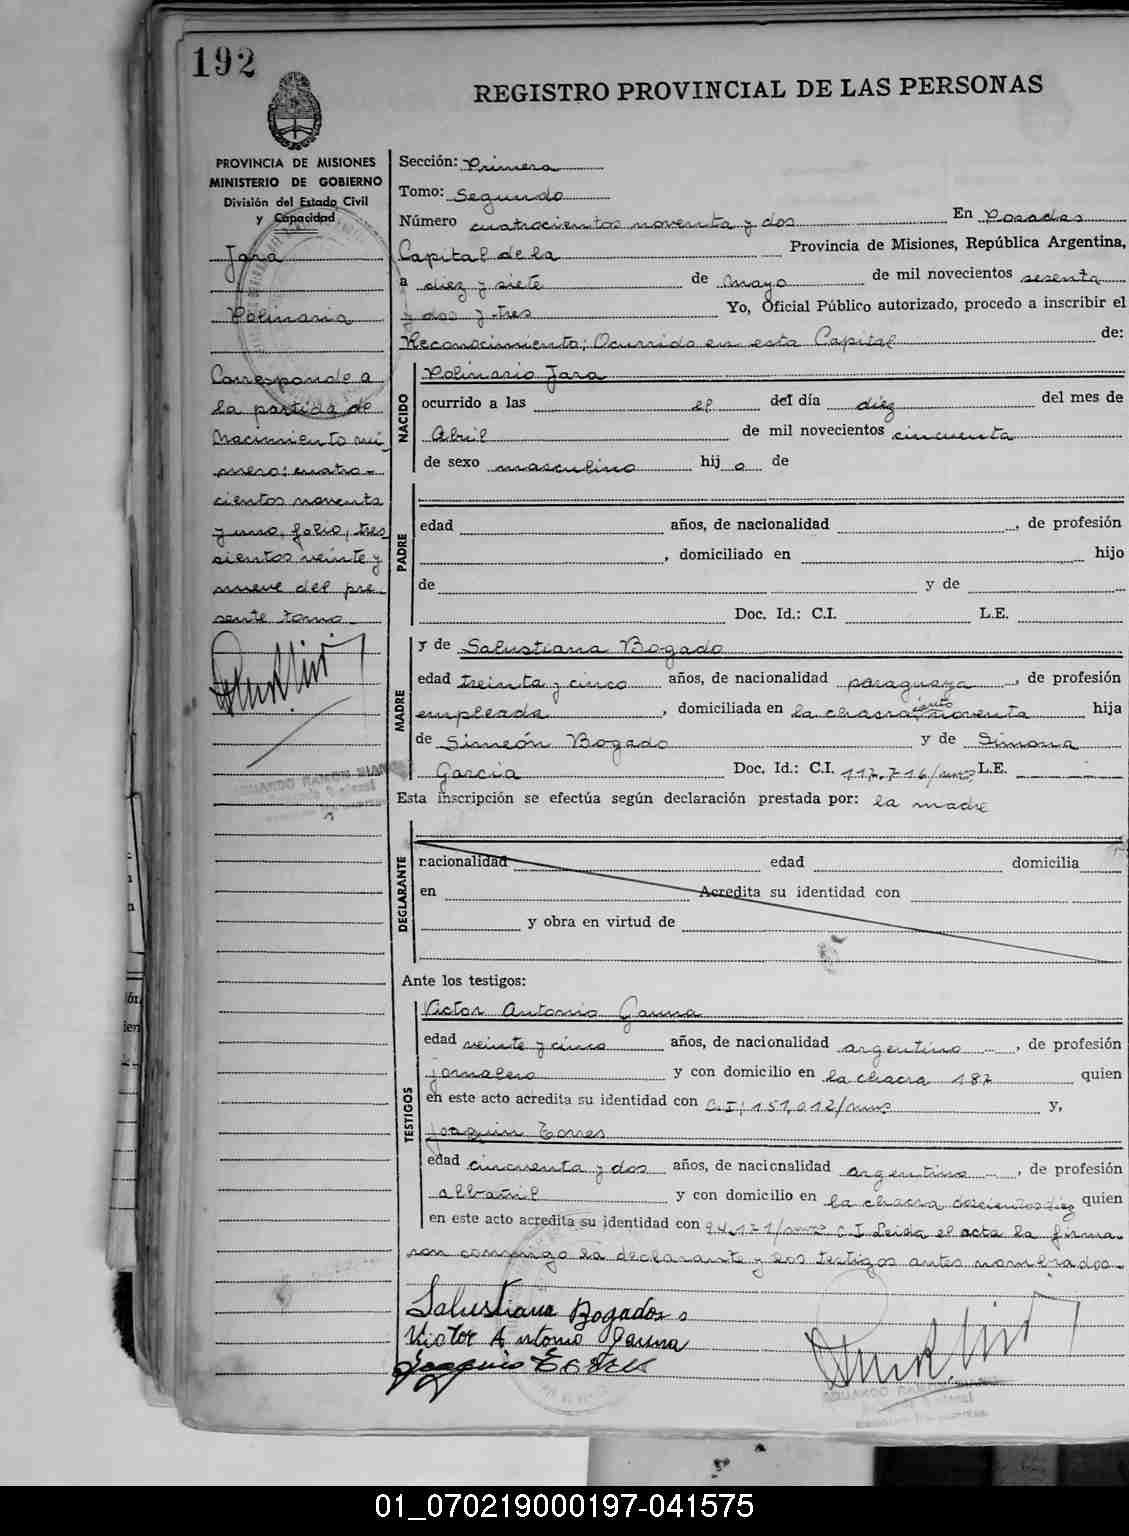 192
REGISTRO PROVINCIAL DE LAS PERSONAS
PROVINCIA DE MISIONES
MINISTERIO DE GOBIERNO
División del Estado Civil
y Capacidad
Jara
Polinario
Corresponde a
la partida de
Nacimiento nú
mero: cuatro-
cientos noventa
y uno, folio, tres
sientos veinte y
nueve del pre-
sente tomo.
Sección: Primera
Tomo: Segundo
Número cuatrocientos noventa y dos En Posadas
Capital de la Provincia de Misiones, República Argentina,
a diez y siete de mayo de mil novecientos sesenta
y dos y tres Yo, Oficial Público autorizado, procedo a inscribir el
Reconocimiento; Ocurrido en esta Capital de:
NACIDO
Polinario Jara
ocurrido a las el del día diez del mes de
Abril de mil novecientos cincuenta
de sexo masculino hij o de
PADRE
edad años, de nacionalidad , de profesión
, domiciliado en hijo
de y de
Doc. Id.: C.I. L.E.
MADRE
y de Salustiana Bogado
edad treinta y cinco años, de nacionalidad paraguaya , de profesión
empleada , domiciliada en la chacra ciento noventa hija
de Simeón Bogado y de Simona
García Doc. Id.: C.I. 117.716/mnes L.E.
Esta inscripción se efectúa según declaración prestada por: la madre
DECLARANTE
nacionalidad edad domicilia
en Acredita su identidad con
y obra en virtud de
Ante los testigos:
TESTIGOS
Victor Antonio Gauna
edad veinte y cinco años, de nacionalidad argentino , de profesión
jornalero y con domicilio en la chacra 187 quien
en este acto acredita su identidad con C.I; 151,012/mnes y,
Joaquin Torres
edad cincuenta y dos años, de nacionalidad argentino , de profesión
albañil y con domicilio en la chacra doscientos diez quien
en este acto acredita su identidad con 94.171/mnes C I Leida el acta la firma-
ron conmigo la declarante y los testigos antes nombrados.-
Salustiana Bogado
Victor Antonio Gauna
Joaquin Torres
01_070219000197-041575